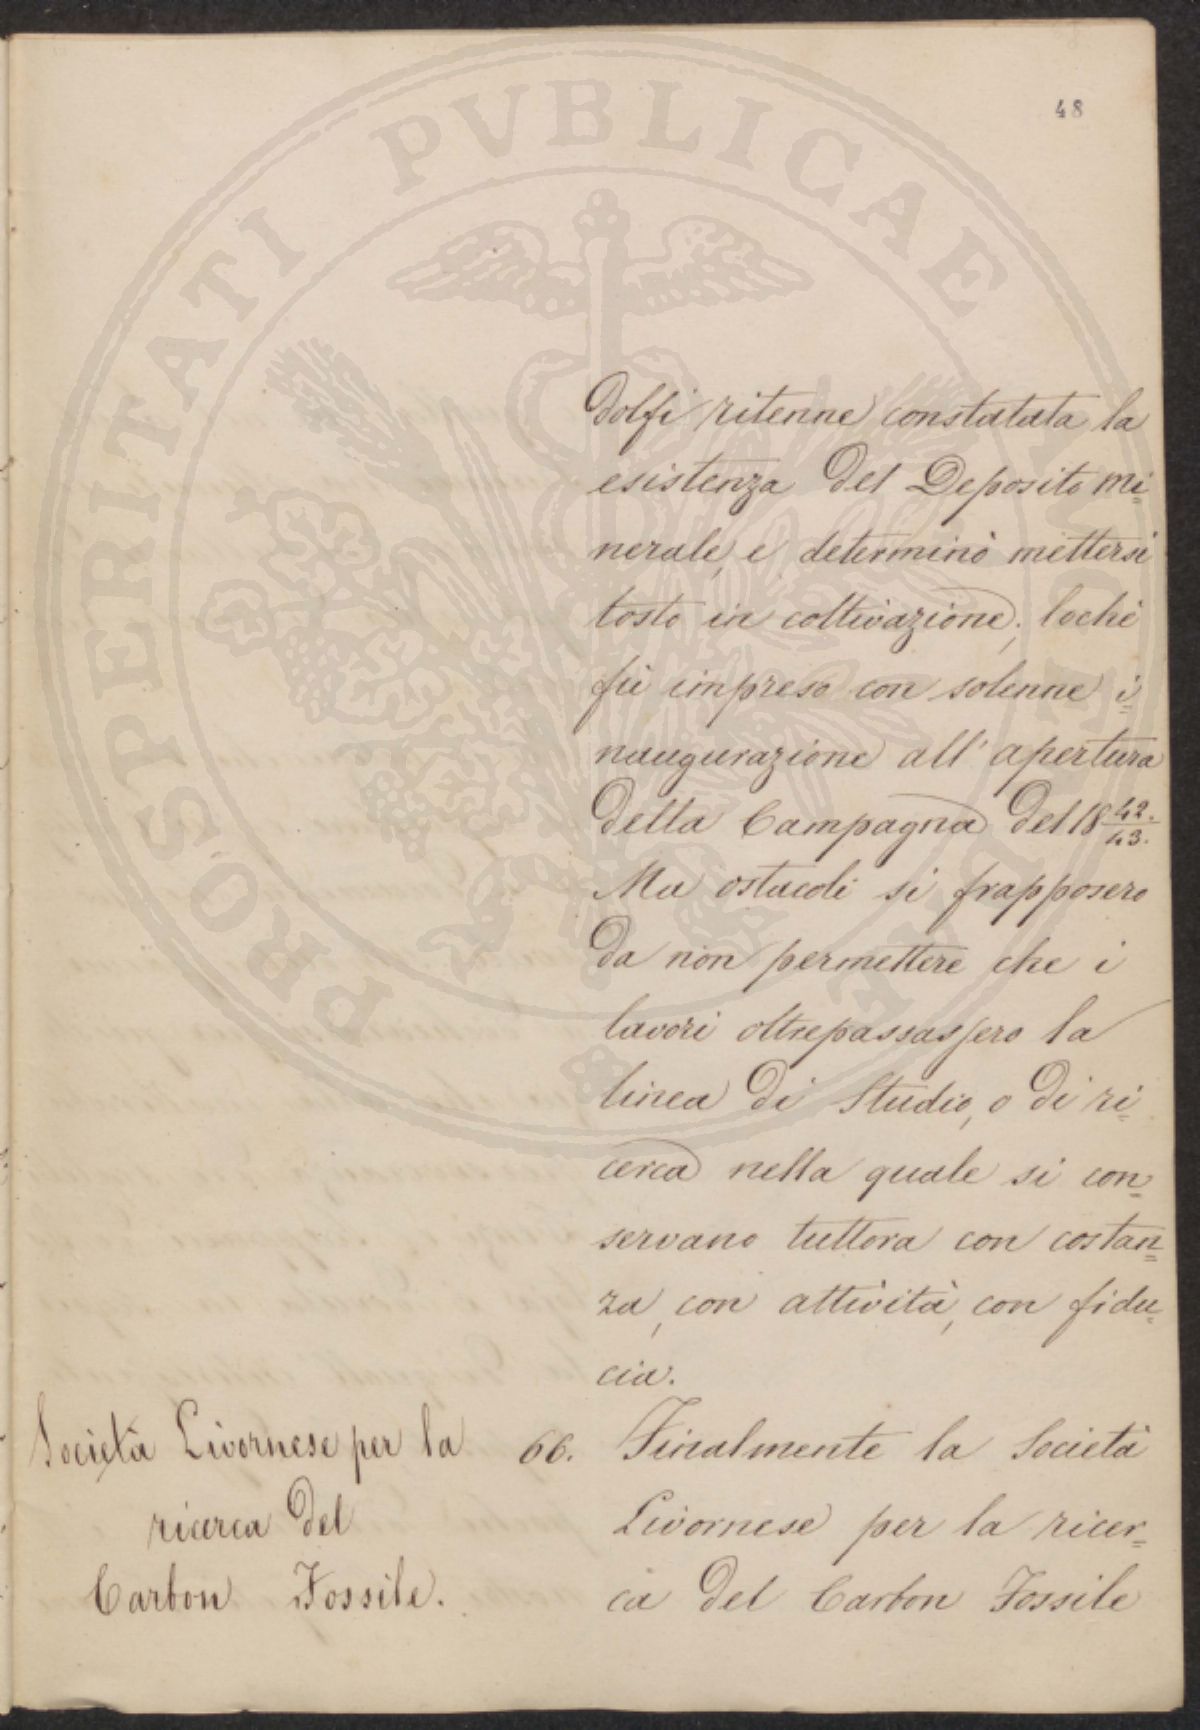 48
PROSPERITATI PVBLICAE
dolfi ritenne constatata la
esistenza del Deposito mi=
nerale, e determinò mettersi
tosto in coltivazione; lochè
fù impreso con solenne i=
naugurazione all'apertura
della Campagna del 18 42./43.
Ma ostacoli si frapposero
da non permettere che i
lavori oltrepassassero la
linea di Studio, o di ri=
cerca nella quale si con=
servano tuttora con costan=
za, con attività, con fidu=
cia.
Società Livornese per la
ricerca del
Carbon Fossile.
66. Finalmente la Società
Livornese per la ricer=
ca del Carbon Fossile